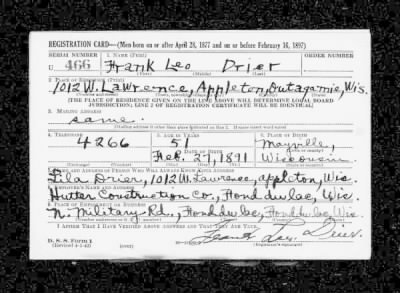 REGISTRATION CARD—(Men born on or after April 28, 1877 and on or before February 16, 1897)
SERIAL NUMBER 1. NAME (Print) ORDER NUMBER
U 466 Frank Leo Drier
(First) (Middle) (Last)
2. PLACE OF RESIDENCE (Print)
1012 W. Lawrence, Appleton, Outagamie, Wis.
(Number and street) (Town, township, village, or city) (County) (State)
[THE PLACE OF RESIDENCE GIVEN ON THE LINE ABOVE WILL DETERMINE LOCAL BOARD
JURISDICTION; LINE 2 OF REGISTRATION CERTIFICATE WILL BE IDENTICAL]
3. MAILING ADDRESS
same.
[Mailing address if other than place indicated on line 2. If same insert word same]
4. TELEPHONE 5. AGE IN YEARS 6. PLACE OF BIRTH
4266 51 Mayville,
DATE OF BIRTH
Feb. 27, 1891 Wisconsin
7. NAME AND ADDRESS OF PERSON WHO WILL ALWAYS KNOW YOUR ADDRESS
Lila Drier, 1012 W. Lawrence, Appleton, Wis
8. EMPLOYER'S NAME AND ADDRESS
Hutter Construction Co., Fond du lac, Wis.
9. PLACE OF EMPLOYMENT OR BUSINESS
N. Military Rd., Fond du lac, Fond du lac, Wis.
I AFFIRM THAT I HAVE VERIFIED ABOVE ANSWERS AND THAT THEY ARE TRUE.
D. S. S. Form 1
(Revised 4-1-42) (over) Frank Leo Drier
(Registrant's signature)